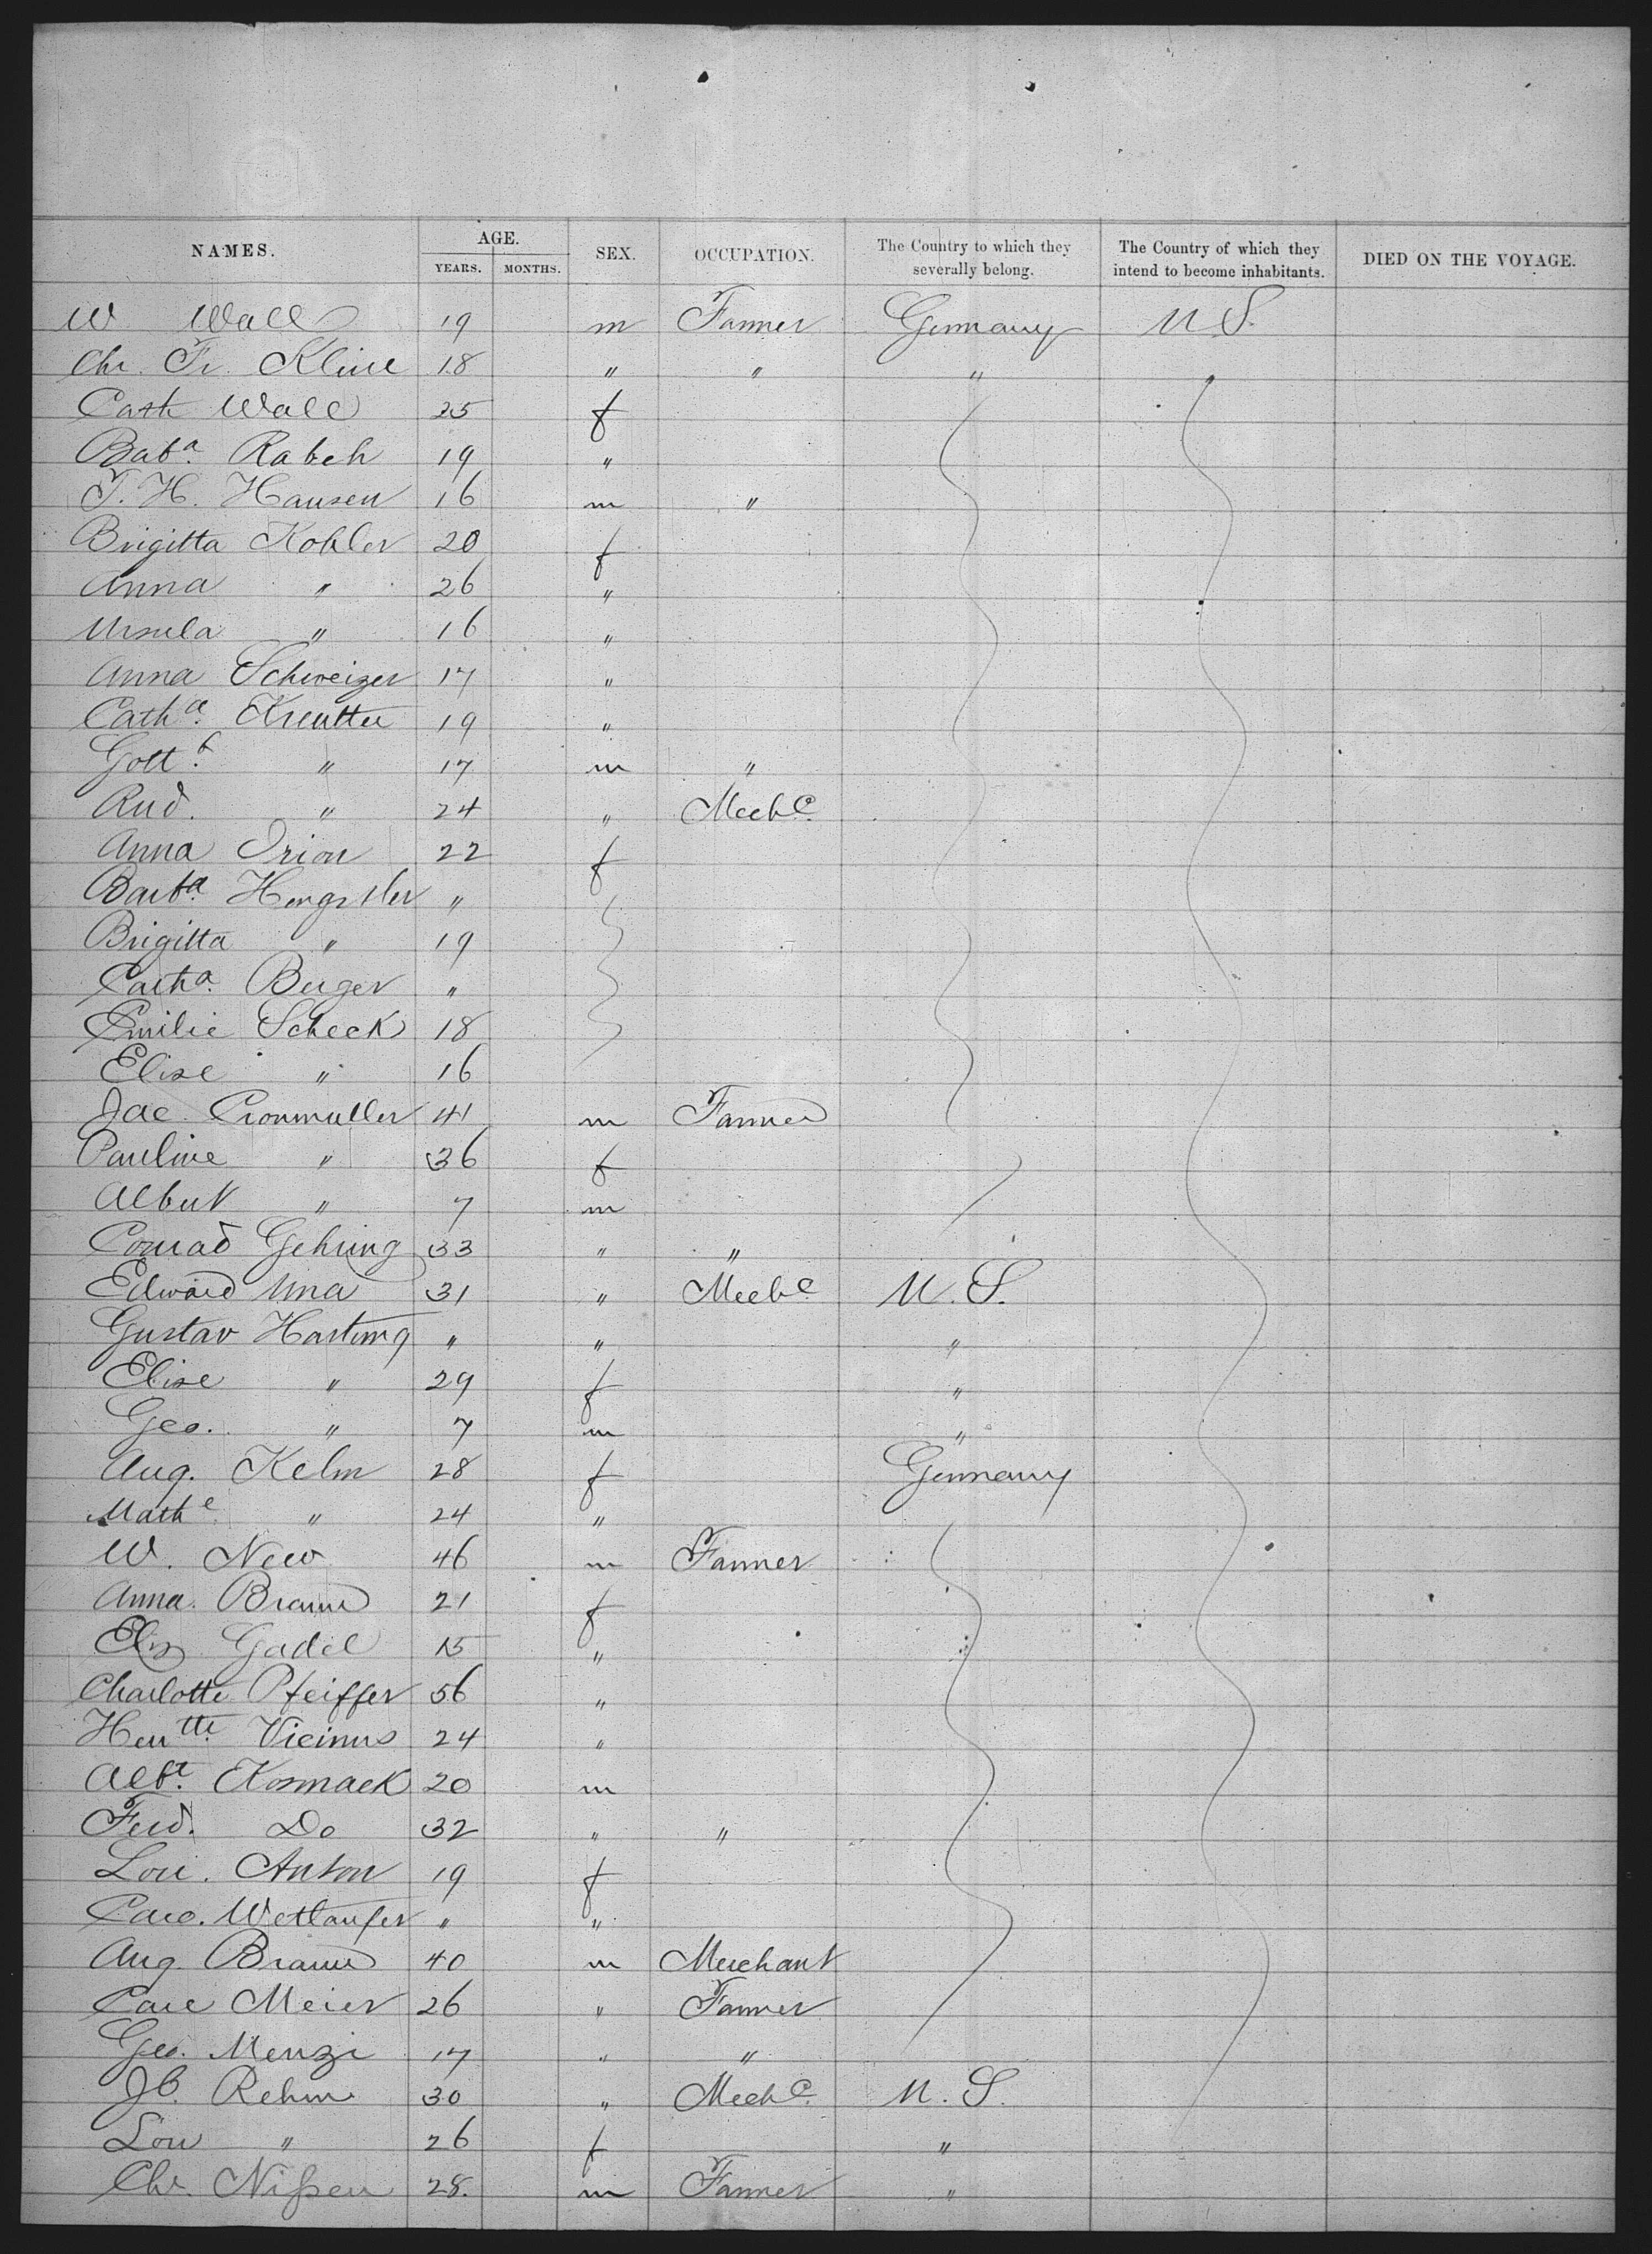 NAMES. AGE. YEARS. MONTHS. SEX. OCCUPATION. The Country to which they severally belong. The Country of which they intend to become inhabitants. DIED ON THE VOYAGE.
W Wall 19 m Farmer Germany U S.
Chr. Fr. Kline 18 " " " "
Cath Wall 25 f
Baba. Rabeh 19 "
T. H. Hansen 16 m "
Brigitta Kohler 20 f
Anna " 26 "
Ursula " 16 "
Anna Schweizer 17 "
Catha. Kreutter 19 "
Gottb. " 17 m "
Rud. " 24 " Mechc.
Anna Irion 22 f
Barba. Hengstler "
Brigitta " 19
Catha. Burger "
Emilie Scheck 18
Elise " 16
Jac. Cronmuller 41 m Farmer
Pauline " 36 f
Albert " 7 m
Conrad Gehring 33 " "
Edward Una 31 " Mechc. U. S.
Gustav Hartung " " "
Elise " 29 f "
Geo. " 7 m "
Aug. Kelm 28 f Germany
Mathe. " 24 "
W. New 46 m Farmer
Anna. Braun 21 f
Elis Gadel 15 "
Charlotte Pfeiffer 56 "
Hentte. Vicinus 24 "
Kosmack 20 m
Ferd. Do 32 " "
Loui. Anton 19 f
Caro. Wetlaufer " "
Aug. Braun 40 m Merchant
Carl Meier 26 " Farmer
Geo. Menzi 17 " "
Jb. Rehm 30 " Mechc. U. S.
Lou " 26 f "
Chr. Nißen 28. m Farmer "